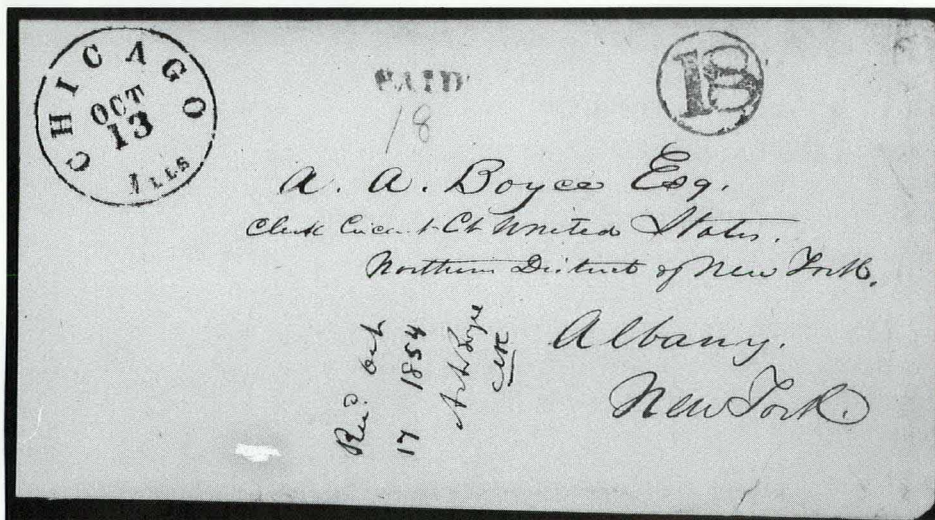 CHICAGO
OCT
13
ILLS
PAID
18
18
A. A. Boyce Esq.
Clerk Circuit Ct United States.
Northern District of New York.
Albany.
New York.
Rec'd. Oct
17 1854
A A Boyce
Clk